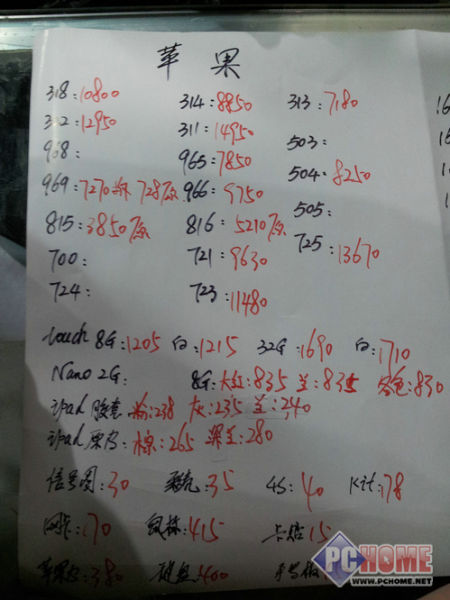 苹果
318:10800 314:8850 313:7180
312:12950 311:14950
968: 965:7850 503:
969:7270 728原 966:9750 504:8250
815:3850原 816:5210原 505:
700: 721:9630 725:13670
724: 723:11480
touch 8G:1205 白:1215 32G:1690 白:1710
Nano 2G: 8G:大红:835 兰:835 色:830
ipad 胶壳 粉:238 灰:235 兰:240
ipad 真皮:棕:265 深兰:280
信号圈:30 壳:35 4S:40 Kit:78
网卡:170 鼠标:415 卡 15
苹果 380 键盘:400
PCHOME
WWW.PCHOME.NET